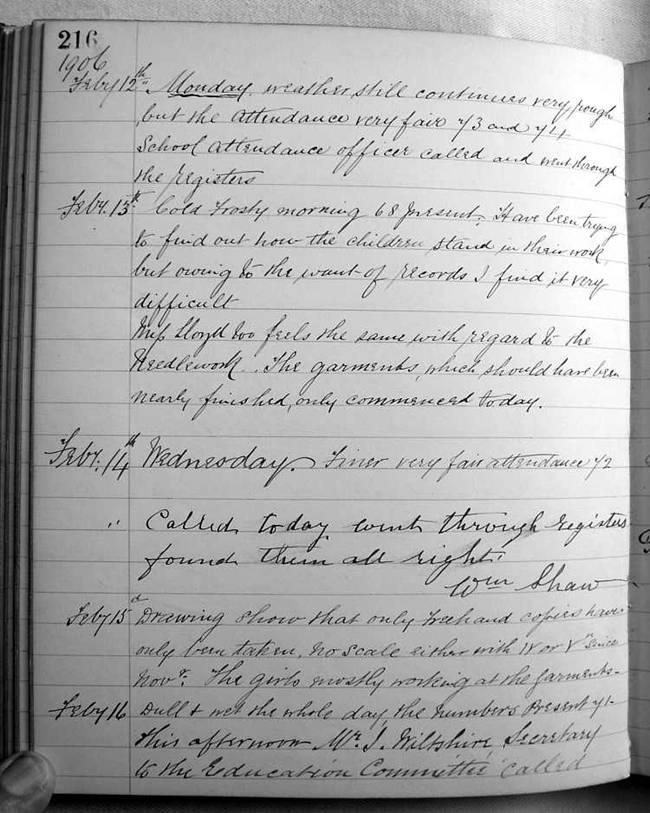 216
1906
Feby 12th Monday, weather still continues very rough
but the attendance very fair 73 and 74
School attendance officer called and went through
the registers
Feby. 13th Cold Frosty morning 68 present. Have been trying
to find out how the children stand in their work
but owing to the want of records I find it very
difficult
Miss Lloyd too feels the same with regard to the
Needlework. The garments, which should have been
nearly finished, only commenced today.
Feby. 14th Wednesday. Finer very fair attendance 72
" Called today went through Registers
found them all right.
Wm Shaw
Feby 15th Drawing show that only Freehand copies have
only been taken, no scale either with IV or V since
Novr. The girls mostly working at the garments
Feby 16 Dull & wet the whole day, the numbers present 71
this afternoon Mr. J. Wiltshire Secretary
to the Education Committee called